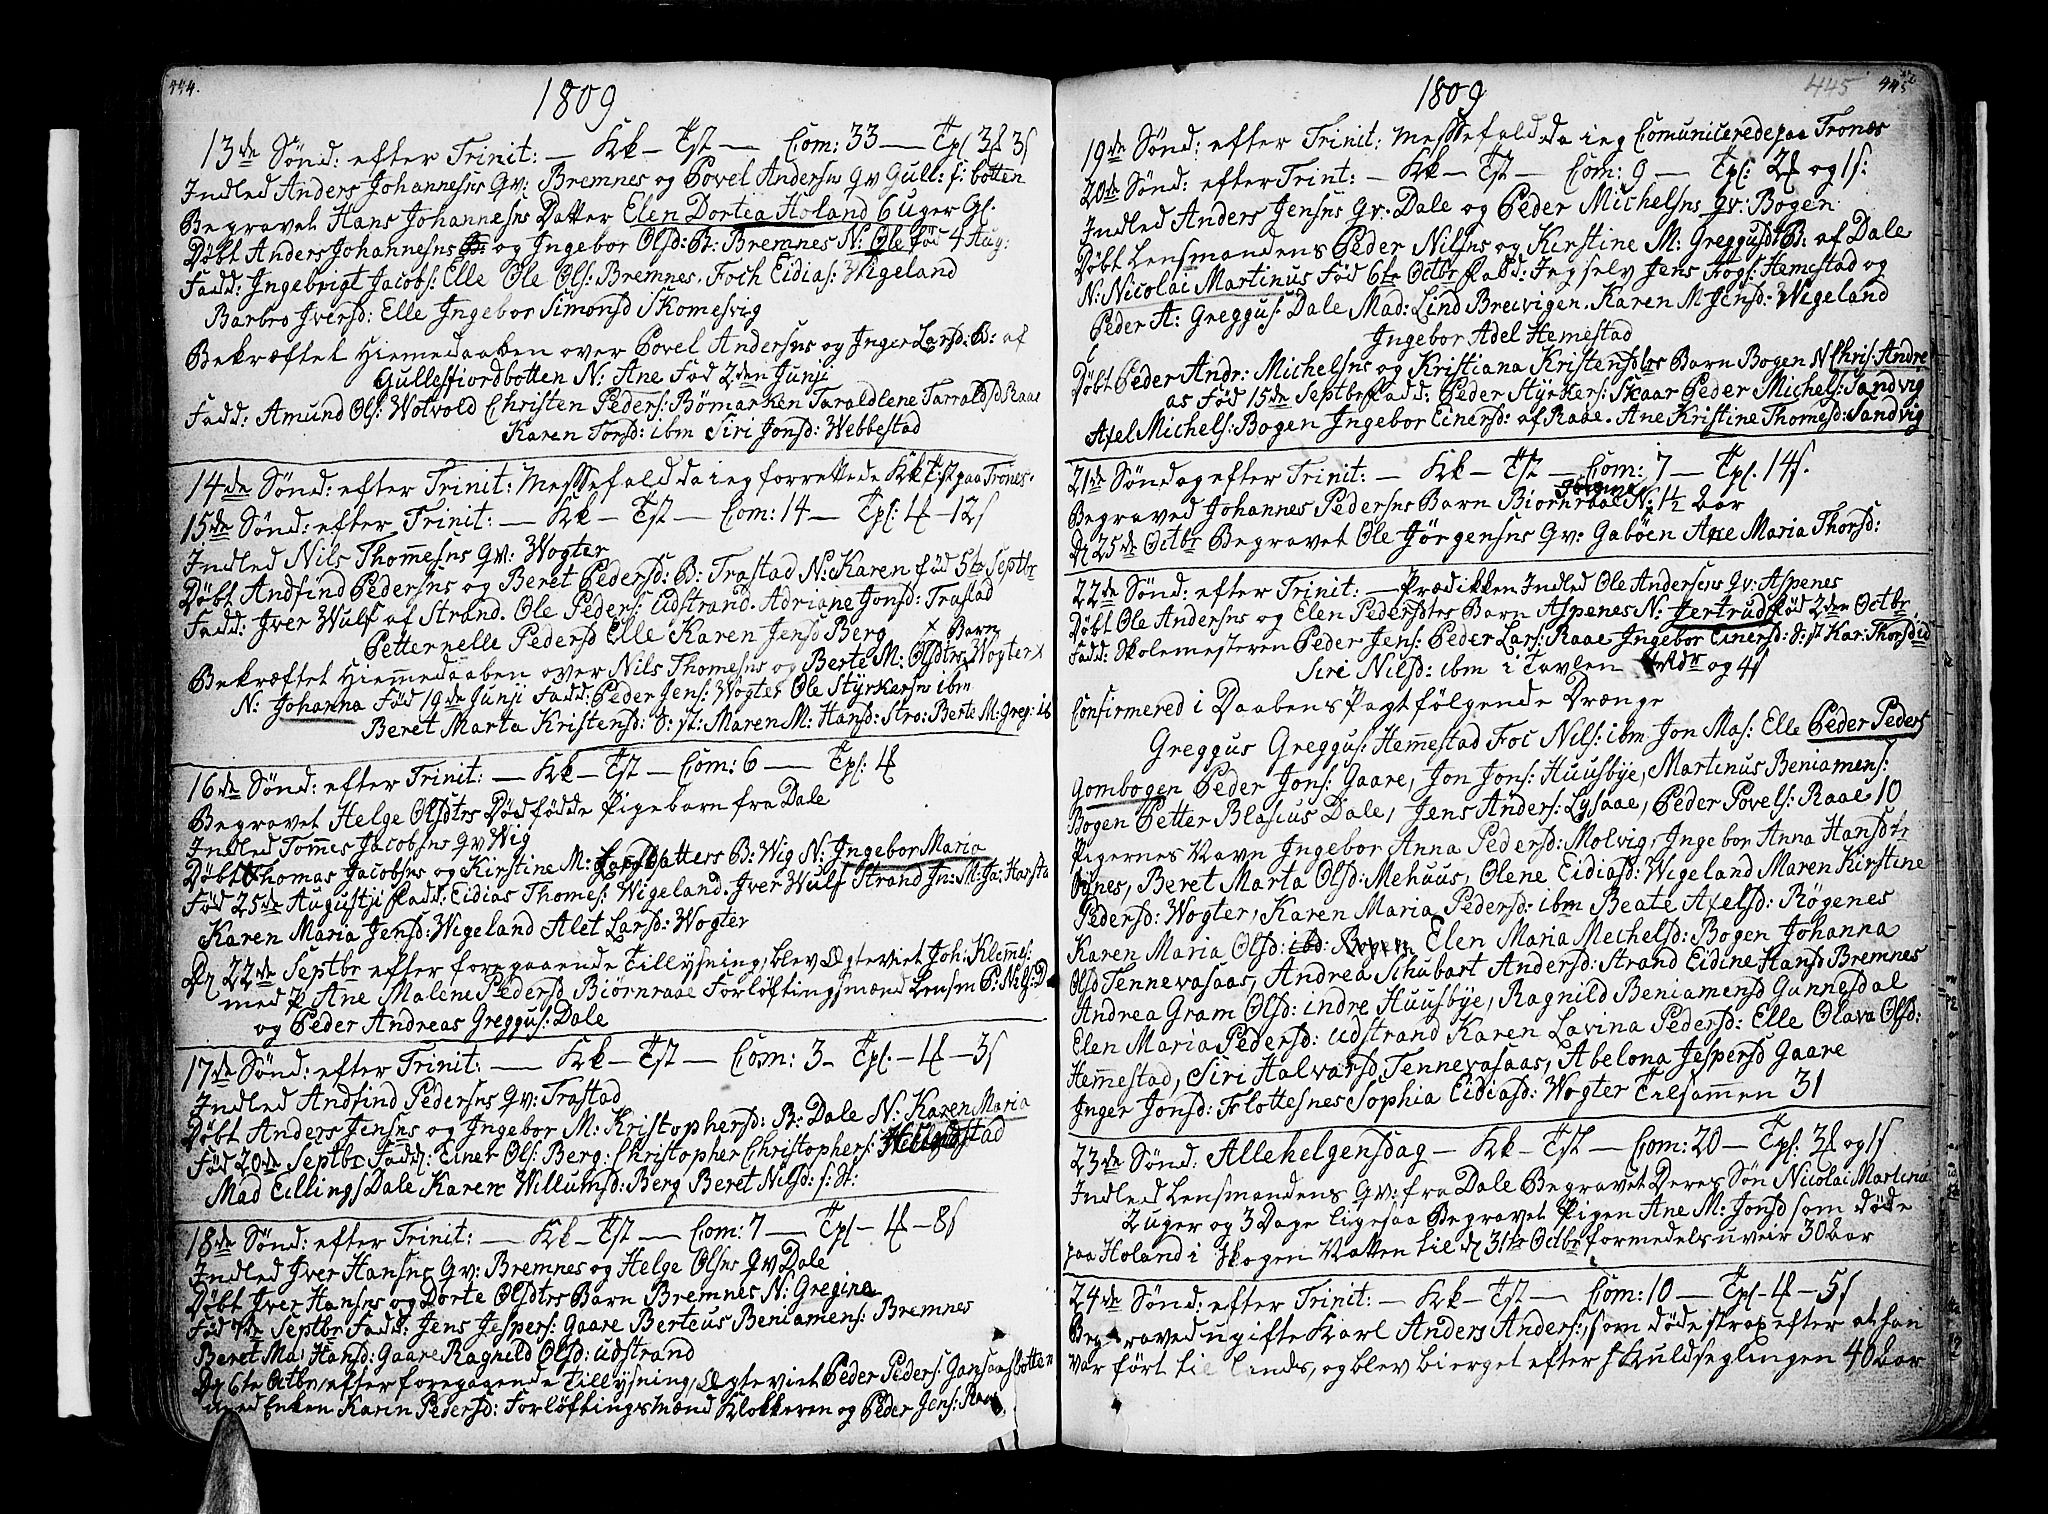 444.
1809
13de Sønd: efter Trinit: — Kk — Tst — Com: 33 — Tpl 3f 3s
Indled Anders Johannesns Qv: Bremnes og Povel Andersns Qv Gull: f: botten
Begravet Hans Johannesns Datter Elen Dortea Holand 6 Uger Gl.
Døbt Anders Johannesns og Ingebor Olsd: B: Bremnes N: Ole Fød 4 Aug:
Fadd: Ingebrigt Jacobs: Elle Ole Ols: Bremnes. Foch Eidias: Wigeland
Barbro Iversd: Elle Ingebor Simonsd Skomesvig
Bekræftet Hiemmedaaben over Povel Andersns og Inger Larsd: B: af
Gullesfiordbotten N: Ane Fød 2den Junji
Fadd: Amund Ols: Wotvold Christen Peders: Bømarken Taraldlene Tarraldsd Raae
Karen Torsd: ibm Siri Jonsd: Webbestad
14de Sønd: efter Trinit: Messefald da ieg forrettede Kk Tst paa Trones.
15de Sønd: efter Trinit: — Kk — Tst — Com: 14 — Tpl: 4 — 12s
Indled Nils Thomesns Qv: Wogter
Døbt Andfind Pedersns og Beret Pedersd: B: Trastad N: Karen fød 5te Septbr
Fadd: Iver Wulf af Strand. Ole Peders: Udstrand. Adriane Jonsd: Trastad
Petternelle Pedersd Elle Karen Jensd Berg x Barn
Bekræftet Hiemmedaaben over Nils Thomesns og Berte M: Olsdtrs Wogter x
N: Johanna Fød 19de Junji Fadd: Peder Jens: Wogter Ole Styrkersns ibm
Beret Marta Kristensd: S: st: Maren M: Hansd: Stro: Berte M: Greg: ib
16de Sønd: efter Trinit: — Kk — Tst — Com: 6 — Tpl: 4f
Begravet Helge Olsdtrs Dødfødde Pigebarn fra Dale
Indled Tommes Jacobsns Qv Wig
Døbt Thomas Jacobsns og Kirstine M: Larsdatters B: Wig N: Ingebor Maria
Fød 25de Augustji Fadd: Eidias Thomes: Wigeland. Iver Wulf Strand Jn: M: Ja: Harsta
Karen Maria Jensd: Wigeland Alet Larsd: Wogter
D 22de Septbr efter foregaaende Tillysning, blev Ægteviet Joh: Klemmes:
med P Ane Malene Pedersd Biørnraae Forløftingsmænd Lensm P: Nils: D
og Peder Andreas Greggus: Dale
17de Sønd: efter Trinit: — Kk — Tst — Com: 3 — Tpl. — 4f — 3s
Indled Andfind Pedersns Qv: Trastad
Døbt Anders Jensns og Ingebor M: Kristophersd: B: Dale N: Karen Maria
Fød 20de Septbr Fadd: Einer Ols: Berg: Christopher Christophers:
Mad Eillings Dale Karen Willumsd: Berg Beret Nilsd: s: St:
18de Sønd: efter Trinit: — Kk — Tst — Com: 7 — Tpl — 4f — 8s
Indled Iver Hansns Qv: Bremnes og Helge Olsns Qv Dale
Døbt Iver Hansns og Dorte Olsdtrs Barn Bremnes N: Gregina
Fød 7de Septbr Fadd: Jens Jespers: Gaare Berteus Beniamens: Bremnes
Beret Ma: Hansd: Gaare Ragnild Olsd: Udstrand
D 6te Octbr, efter foregaaende Tillysning, Ægteviet Peder Peders: Gausaasbotten
med Enken Karin Pedersd: Forløftingsmænd Klokkeren og Peder Jens: Raae
445 445
1809
19de Sønd: efter Trinit: Messefald da ieg Comunicerede paa Trones
20de Sønd: efter Trint: — Kk — Tst — Com: 9 — Tpl: 2f og 1s:
Indled Anders Jensns Qv: Dale og Peder Michelsns Qv: Bogen
Døbt Lensmandens Peder Nilsns og Kirstine M: Greggusdt B: af Dale
N: Nicolai Martinus Fød 6te Octbr Fadd: Ieg selv Jens Aogs: Hemestad og
Peder A: Greggus: Dale Mad: Lind Breivigen. Karen M Jensd: Wigeland
Ingebor Adel Hemestad
Døbt Peder Andr: Michelsns og Kristiana Kristensdtrs Barn Bogen N Chris: Andre
as Fød 15de Septbr Fadd: Peder Styrkers: Skaar Peder Michels: Sandvig
Axel Michels: Bogen Ingebor Einersd: af Raae. Ane Kristine Thomesd: Sandvig
21de Søndag efter Trinit: — Kk — Tst — Com: 7 — Tpl. 14s.
Begraved Johannes Pedersns Barn Biornraae N: 1½ Aar
D 25de Octbr Begravet Ole Jørgensns Qv: Gabøen Ane Maria Thorsd:
22de Sønd: efter Trinit: — Prædikken Indled Ole Andersens Qv: Aspenes
Døbt Ole Andersns og Elen Pedersdtrs Barn Aspenes N: Jertrud fød 2den Octbr
Fadd: Skolemesteren Peder Jens: Peder Lars: Raae Ingebor Einersd: S: st Kar: Thorsd id
Siri Nilsd: ibm i Tavlen og 4s
Confirmered i Daabens Pagt følgende Drænge
Greggus Greggus: Hemmestad Foc Nils: ibm Jon Mas: Elle Peder Peders
Gombogen Peder Jons: Gaare, Jon Jons: Huusbye, Martinus Beniamens:
Bogen Petter Blasius Dale, Jens Anders: Lysaae, Peder Povels: Raae 10
Pigernes Navn Ingebor Anna Pedersd: Molvig, Ingebor Anna Hansdtr
Øynes, Beret Marta Olsd: Mehuus, Olene Eidiasd: Wigeland Maren Kirstine
Pedersd: Wogter, Karen Maria Pedersd: ibm Beate Axelsd: Røgenes
Karen Maria Olsd: ibd: Bogen Elen Maria Mechelsd: Bogen Johanna
Olsd Tennevasaas, Andrea Schubart Andersd: Strand Eidine Hansd Bremnes
Andrea Gram Olsd: indre Huusbye, Ragnild Beniamensd Gunnesdal
Elen Maria Pedersd: Udstrand Karen Lavina Pedersd: Elle Olava Olsd:
Hemmestad, Siri Halvarsd Tennevasaas, Abelona Jespersd Gaare
Inger Jonsd: Flottesnes Sophia Eidiasd: Wogter Tilsammen 31
23de Sønd: Allehelgensdag — Kk — Tst — Com: 20 — Tpl: 3f og 1s
Indled Lensmandens Qv: fra Dale Begravet Deres Søn Nicolai Martinu
2 uger og 3 Dage ligesaa Begravet Pigen Ane M: Jonsd som døde
paa Holand i Skogen Natten til D 31te Octbr formedels uveir 30 Aar
24de Sønd: efter Trinit: — Kk — Tst — Com: 10 — Tpl — 4f — 5s
Begraved ugifte Karl Anders Anders:, som døde strax efter at han
var ført til Lands, og blev bierget efter Kuldseglingen 40 Aar